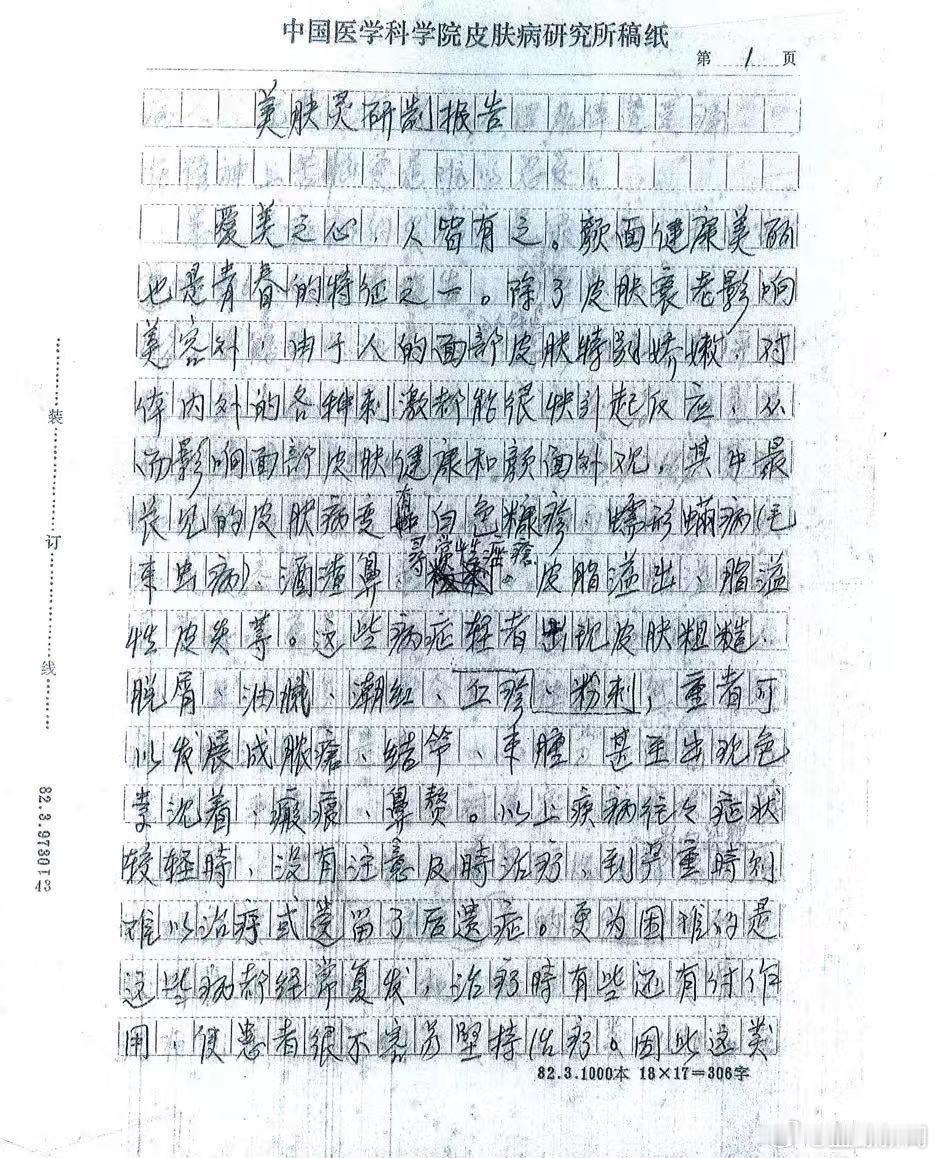 中国医学科学院皮肤病研究所稿纸
第 1 页
美肤灵研制报告
爱美之心,人皆有之。颜面健康美丽
也是青春的特征之一。除了皮肤衰老影响
美容外,由于人的面部皮肤特别娇嫩,对
体内外的各种刺激都能很快引起反应,从
而影响面部皮肤健康和颜面外观。其中最
常见的皮肤病变有白色糠疹、蠕形螨病(毛
束虫病)、酒渣鼻、寻常性痤疮。皮脂溢出、脂溢
性皮炎等。这些病症轻者出现皮肤粗糙、
脱屑、油腻、潮红、丘疹、粉刺,重者可
以发展成脓疮、结节、束腫,甚至出现色
素沉着、瘢痕、鼻赘。以上疾病往々症状
较轻時,没有注意及時治疗,到严重時则
难以治疗或遗留了后遗症。更为困难的是
这些病都经常复发,治疗時有些还有付作
用,使患者很不容易坚持治疗。因此这类
82.3.1000本 18×17=306字
装
订
线
82.3.9780143